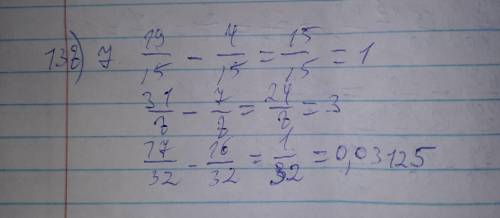 138) 7 19/15 - 4/15 = 15/15 = 1
31/8 - 7/8 = 24/8 = 3
17/32 - 16/32 = 1/32 = 0,03125